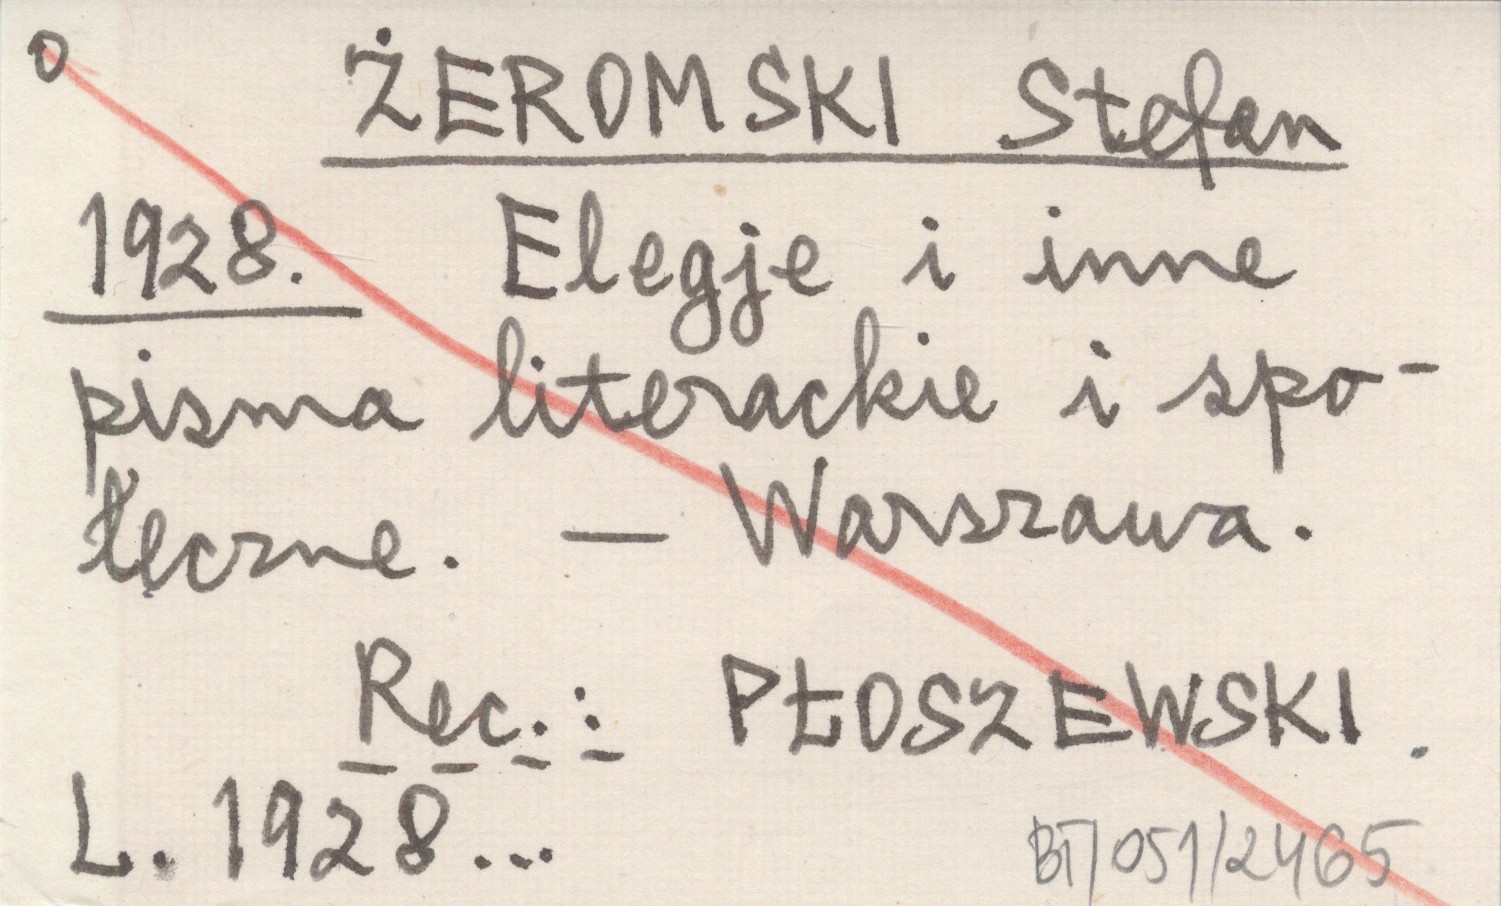 o ŻEROMSKI Stefan
1928. Elegje i inne
pisma literackie i spo-
łęczne. — Warszawa.
Rec.: PŁOSZEWSKI.
L. 1928...
BT/051/2465